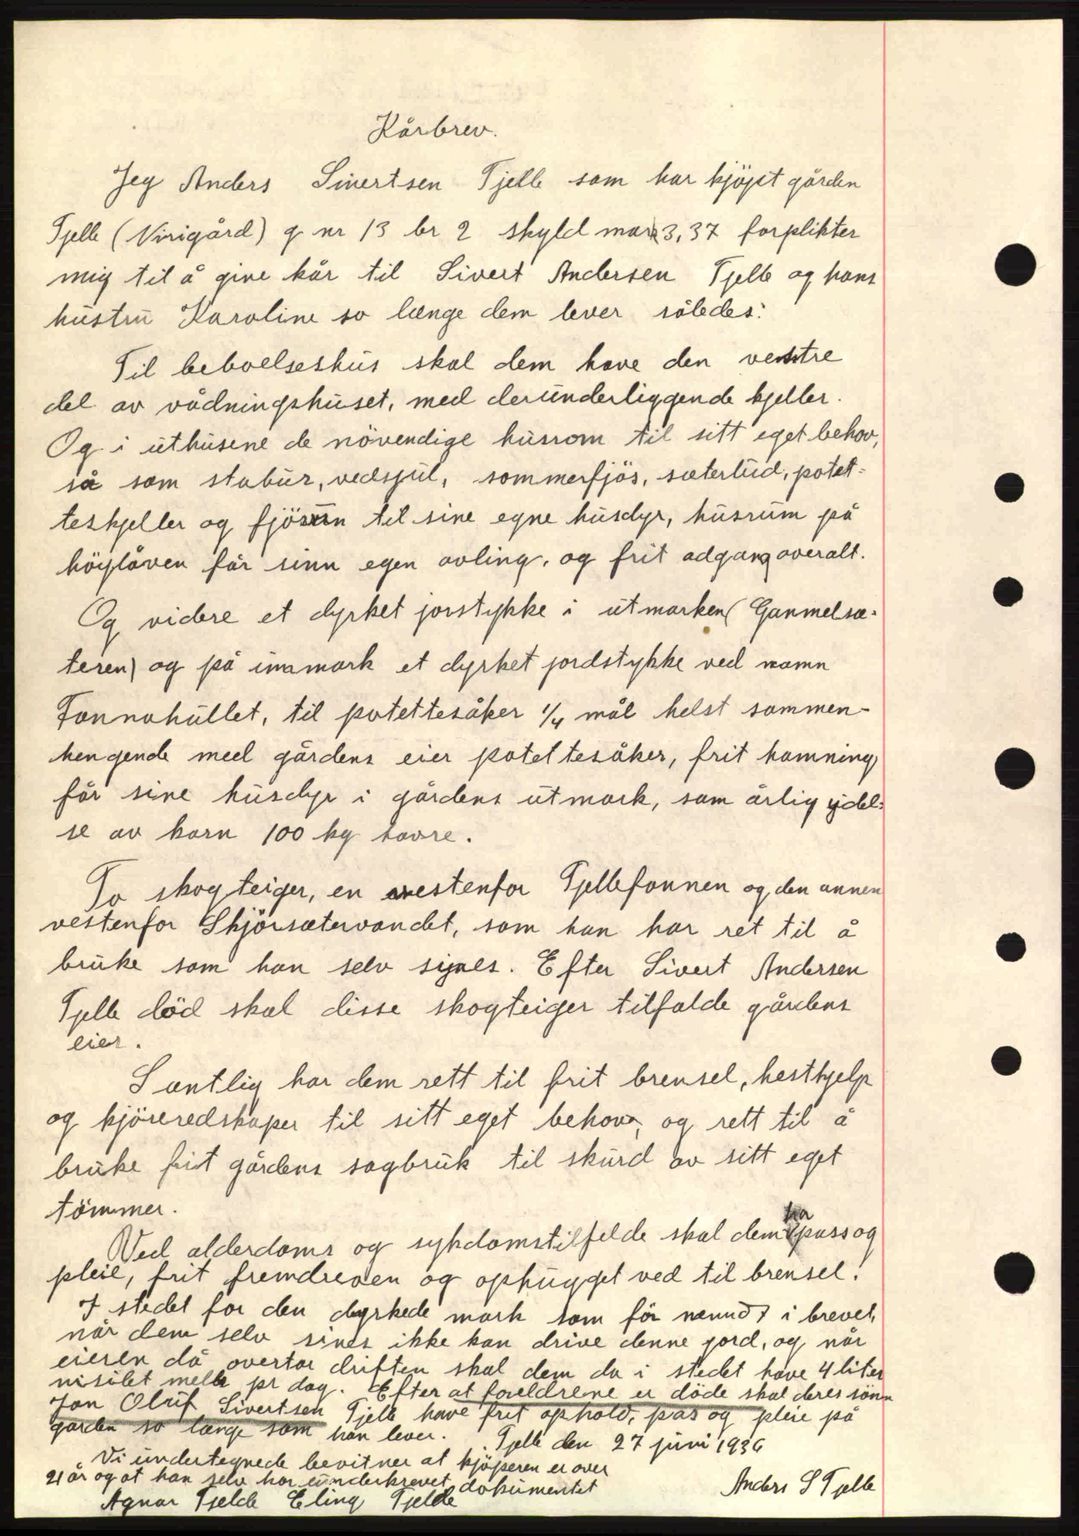 Kårbrev.
Jeg Anders Sivertsen Tjelle som har kjöpt gården
Tjelle (Virigård) g nr 13 br 2 skyld mark 3,37 forplikter
mig til å give kår til Sivert Andersen Tjelle og hans
hustru Karoline so længe dem lever således:
Til beboelseshus skal dem have den venstre
del av vådningshuset, med derunderliggende kjeller.
Og i uthusene de növendige husrom til sitt eget behov,
så som stabur, vedsjul, sommerfjös, sæterbud, potet-
teskjeller og fjösrum til sine egne husdyr, husrum på
höiglåven får sinn egen avling, og frit adgang overalt.
Og videre et dyrket jorstykke i utmarken (Gammelsæ-
teren) og på innmark et dyrket jordstykke ved namn
Fonnahullet, til potettesåker 1/4 mål helst sammen-
hengende med gårdens eier potettesåker, frit hamning
får sine husdyr i gårdens utmark, som årlig ydel-
se av korn 100 kg havre.
To skogteiger, en vestenfor Tjellefonnen og den annen
vestenfor Skjörsætervandet, som han har ret til å
bruke som han selv synes. Efter Sivert Andersen
Tjelle död skal disse skogteiger tilfalde gårdens
eier.
Samtlig har dem rett til frit brensel, hesthjelp
og kjöreredskaper til sitt eget behov, og rett til å
bruke frit gårdens sagbruk til skurd av sitt eget
tömmer.
Ved alderdoms og sykdomstilfelde skal dem ha pass og
pleie, frit fremdreven og ophugget ved til brensel.
I stedet for den dyrkede mark som för nevnd i brevet,
når dem selv sines ikke kan drive denne jord, og når
eieren då overtar driften skal dem da i stedet have 4 liter
nisilet melk pr dag. Efter at foreldrene er döde skal deres sönn
Jon Oluf Sivertsen Tjelle have frit ophold, pas og pleie på
garden so lange som han lever. Tjelle den 27 juni 1936
Vi undertegnede bevitner at kjöperen er over
21 år og at han selv har underkrevet dokumentet
Anders S Tjelle
Agnar Tjelde Eling Tjelde